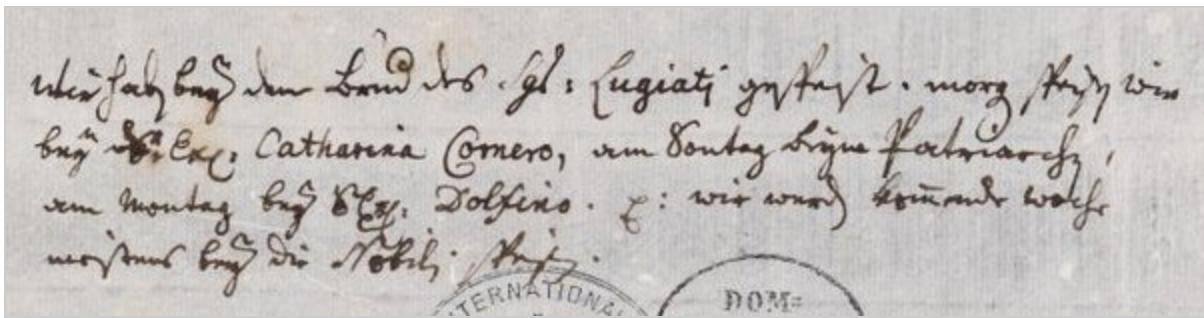 wir haben bey dem Brud des Sgr: Lugiati gespeist. morgen speisen wir
bey Sr: Exc: Catharina Cornero, am Sontag beym Patriarchen,
am Montag bey S: Exc: Dolfino. wir werden kom̄ende woche
meistens bey die Nobili speisen.
INTERNATIONA
DOM=